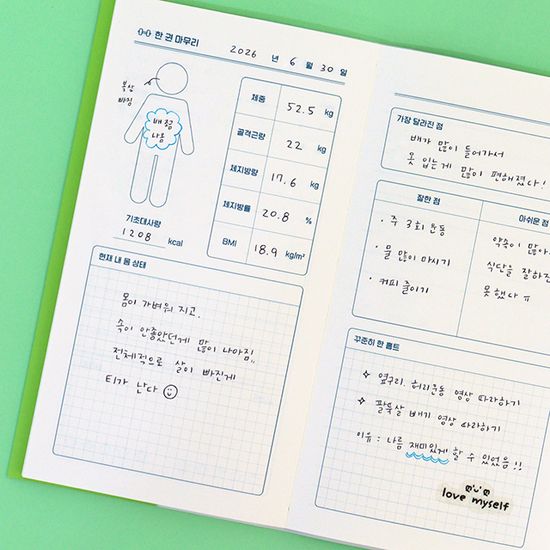 한 권 마무리
2026 년 6 월 30 일
부장
바찡
배 조금
나옴
체중 52.5 kg
골격근량 22 kg
체지방량 17.6 kg
체지방률 20.8 %
BMI 18.9 kg/m²
기초대사량
1208 kcal
현재 내 몸 상태
몸이 가벼워 지고.
속이 안좋았던게 많이 나아짐..
전체적으로 살이 빠진게
티가 난다
가장 달라진 점
배가 많이 들어가서
옷 입는게 많이 편해졌다!
잘한 점
· 주 3회 운동
· 물 많이 마시기
· 커피 줄이기
아쉬운 점
약속이 많아
식단을 잘하진
못했다 ㅠ
꾸준히 한 홈트
✧ 옆구리. 허리운동 영상 따라하기
✧ 팔뚝살 빼기 영상 따라하기
이유 : 나름 재미있게 할 수 있었음!!
love myself